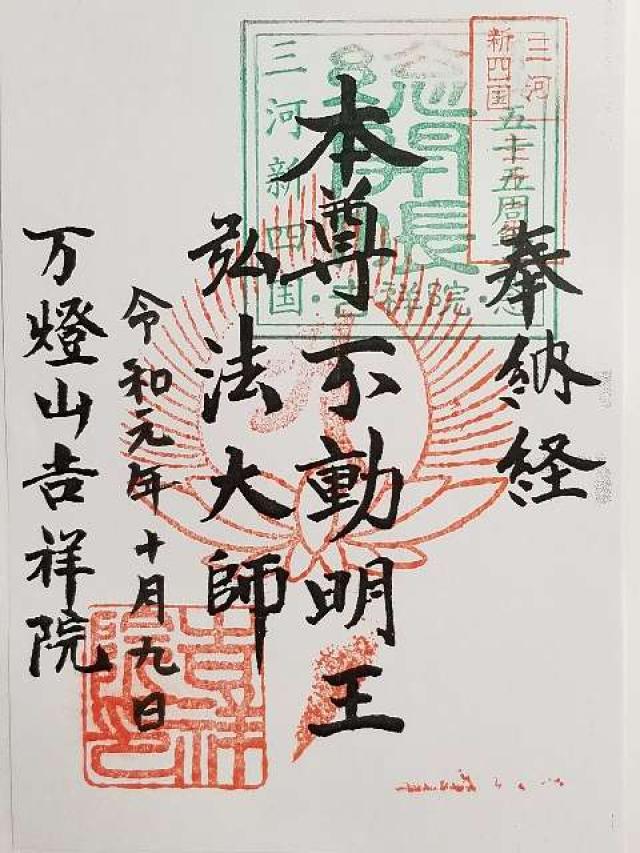 奉納経
本尊不動明王
弘法大師
令和元年十月九日
万燈山吉祥院
三河
新四国
五十五周年
三河新四国・吉祥院・
吉祥
院印